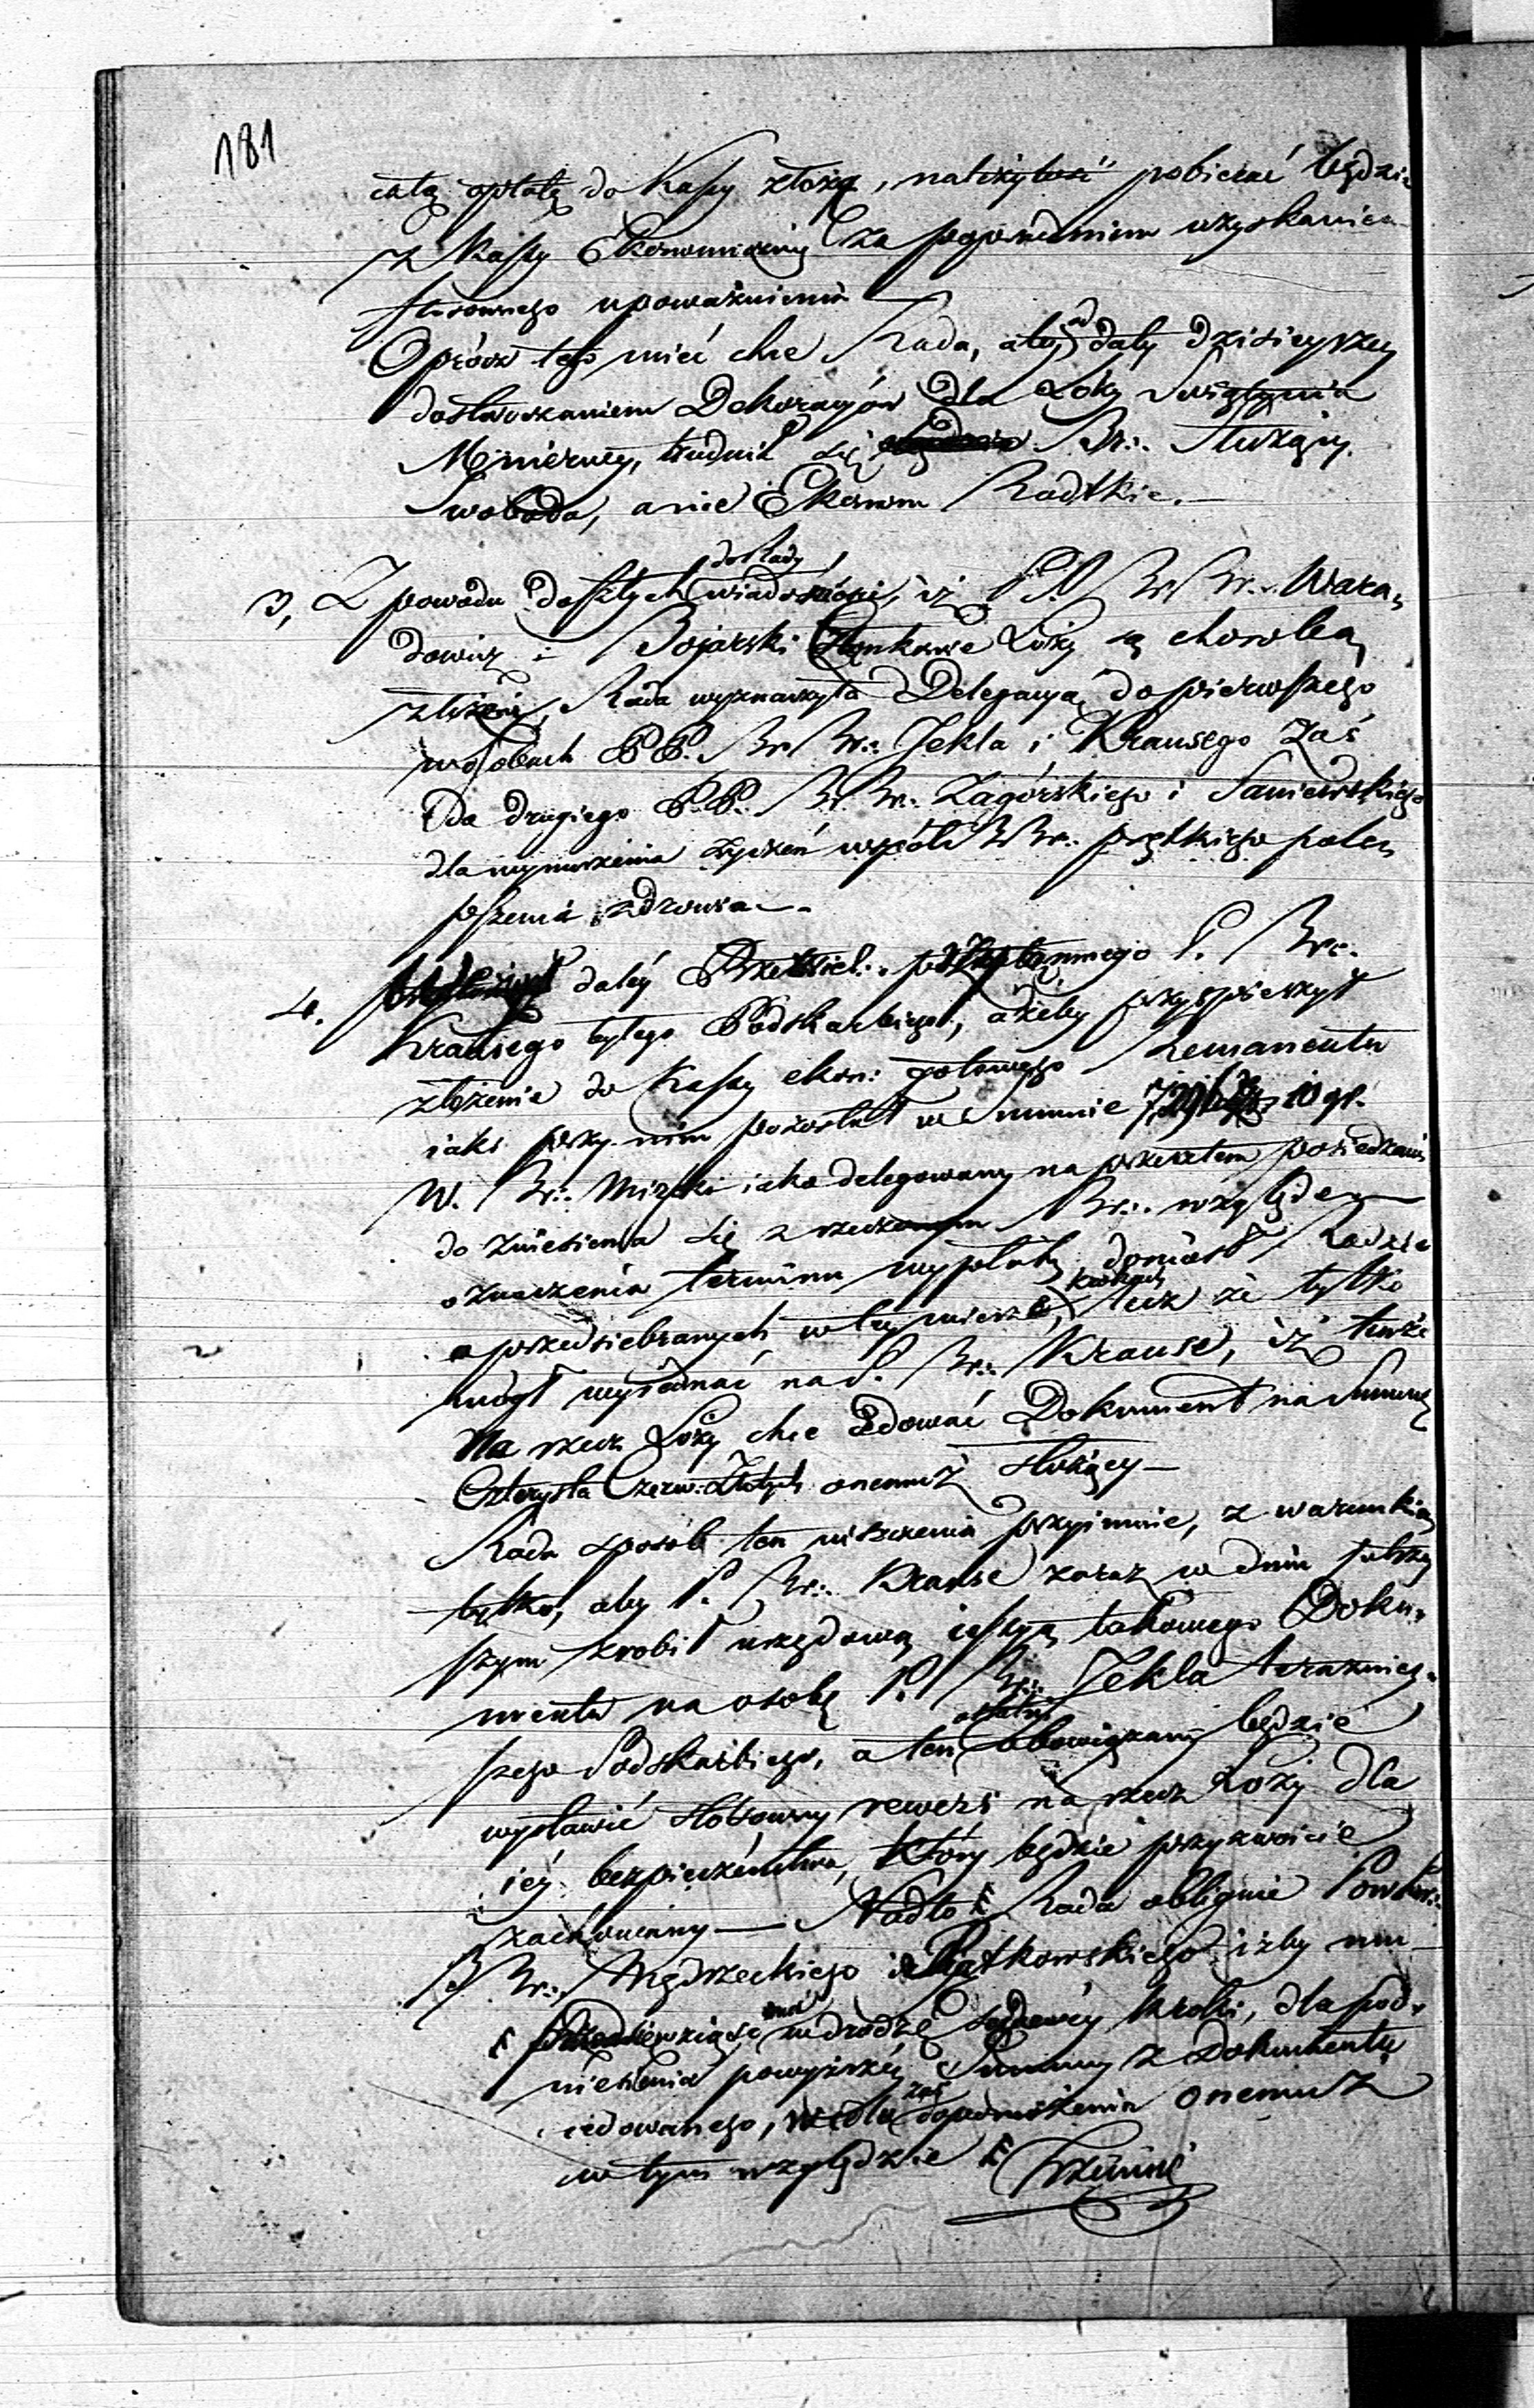 181
całą opłatę do Kassy złożą, natenczas pobierać będzie
z Kassy Ekonomiczney za poprzedniem uzyskaniem
stosownego upoważnienia
Oprócz tego mieć chce Rada, aby od daty dzisieyszey
dostarczaniem Dekoracyów dla Loży Świątynia
Minerwy, trudnił się Br∴ Służący
Swoboda, a nie Ekonom Radtkie.—
3, Z powodu doszłych do Rady wiadomości, iż PP BrBr∴ Wara,
dowicz i Bojarski Członkowie Loży są chorobą
złożeni, Rada wyznaczyła Delegacyą do pierwszego
w osobach PP. BrBr∴ Jekla i Krausego zaś
Do drugiego P.P. Br.Br∴ Zagórskiego i Saniewskiego
dla wynurzenia życzeń współ BrBr∴ prętkiego polep
szenia zdrowia.—
4. daléy P. Br∴
Krausego byłego Podskarbiego, ażeby przyspieszył
złożenie do Kassy ekon: gotowego Remanentu
iaki przy nim pozostał w Summie 10 gr.
W. Br∴ Mirski iako delegowany na przeszłem posiedzeniu
do zniesienia się z rzeczonym Br∴ względem
oznaczenia terminu wypłaty, doniósł Radzie
o przedsiebranych w tey mierze krokach, lecz że tylko
mógł wyjednać na P. Br∴ Krause, iż tenże
Na rzecz Loży chce cedować Dokument na Summę
Czterysta Czerw: Złotych onemuż służący—
Rada sposób ten uiszczenia przyimuie, z warunkiem
tylko, aby P. Br∴ Krause zaraz w dniu jutrzey
szym zrobił urzędową cessyą takowego Doku,
mentu na osobę P. Br∴ Jekla teraźniey,
szego Podskarbiego, a ten ostatni obowiązany będzie
wystawić stosowny rewers na rzecz Loży dla
iéy bezpieczeństwa, który będzie przyzwoicie
zachowany— Nadto Rada obliguie
BBr∴ Mędrzeckiego i Piątkowskiego iżby
w drodze sądowéy kroki, dla pod,
niesienia powyższéy Summy z Dokumentu
cedowanego, zaś onemuż
w tym względzie